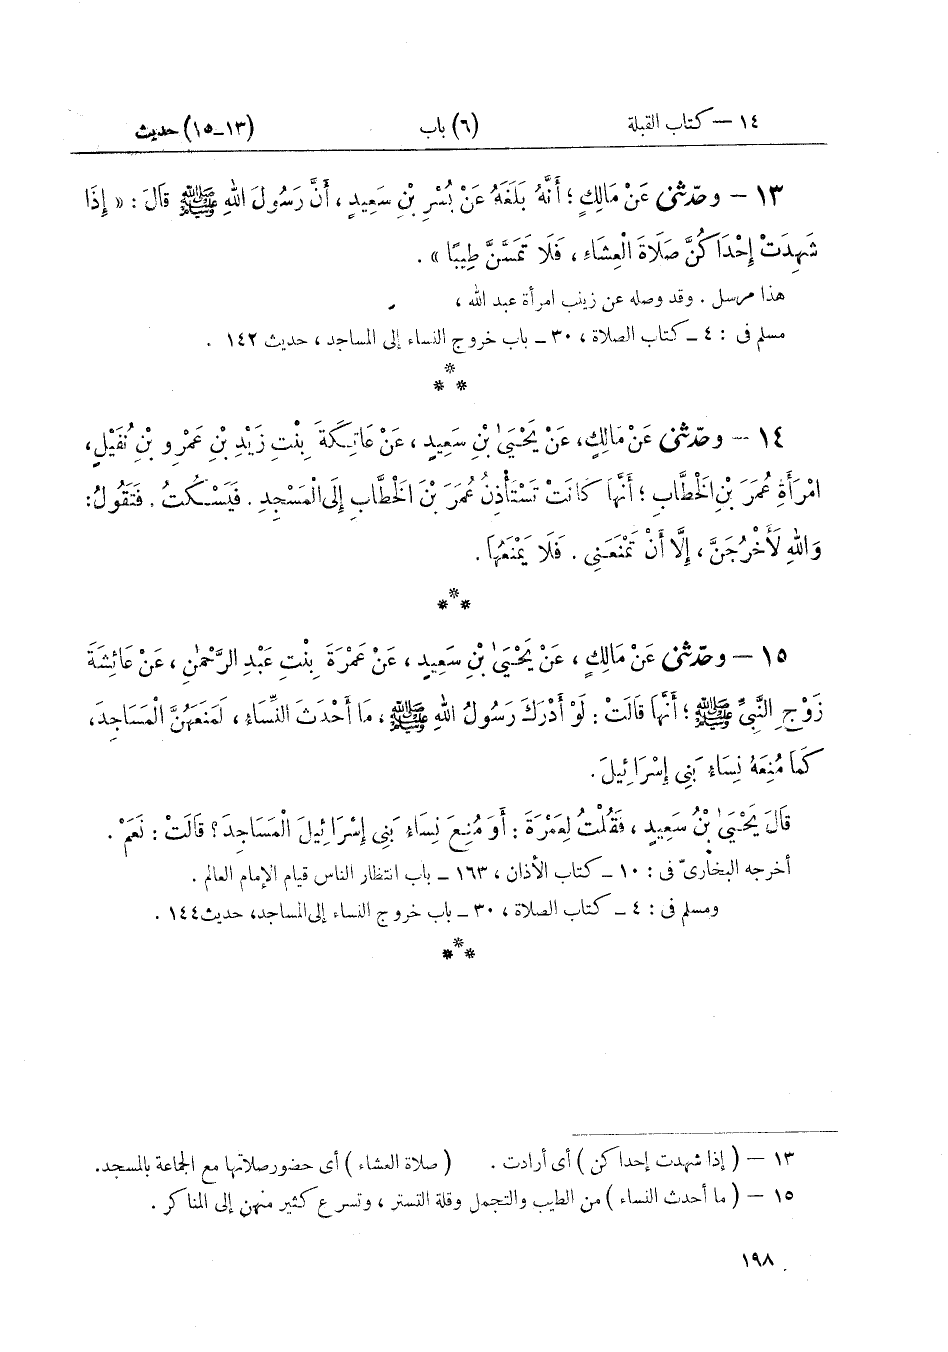 ١٤ – كتاب القبلة (٦) باب (١٣–١٥) حديث
١٣ – وحدّثنى عَنْ مَالِكٍ ؛ أَنَّهُ بَلَغَهُ عَنْ بُسْرِ بْنِ سَعِيدٍ ، أَنَّ رَسُولَ اللهِ ﷺ قَالَ : « إِذَا
شَهِدَتْ إِحْدَاكُنَّ صَلَاةَ الْعِشَاءِ ، فَلَا تَمَسَّنَّ طِيبًا » .
هذا مرسل . وقد وصله عن زينب امرأة عبد الله ،
مسلم فى : ٤ ـ كتاب الصلاة ، ٣٠ ـ باب خروج النساء إلى المساجد ، حديث ١٤٢ .
***
١٤ – وحدّثنى عَنْ مَالِكٍ، عَنْ يَحْيَىٰ بْنِ سَعِيدٍ ، عَنْ عَاتِكَةَ بِنْتِ زَيْدِ بْنِ عَمْرِو بْنِ نُفَيْلٍ،
امْرَأَةِ عُمَرَ بْنِ الْخَطَّابِ ؛ أَنَّهَا كَانَتْ تَسْتَأْذِنُ عُمَرَ بْنَ الْخَطَّابِ إِلَى الْمَسْجِدِ . فَيَسْكُتُ . فَتَقُولُ:
وَاللهِ لَأَخْرُجَنَّ ، إِلَّا أَنْ تَمْنَعَنِى . فَلَا يَمْنَعُهَا .
***
١٥ – وحدّثنى عَنْ مَالِكٍ ، عَنْ يَحْيَىٰ بْنِ سَعِيدٍ ، عَنْ عَمْرَةَ بِنْتِ عَبْدِ الرَّحْمٰنِ ، عَنْ عَائِشَةَ
زَوْجِ النَّبِىِّ ﷺ ؛ أَنَّهَا قَالَتْ : لَوْ أَدْرَكَ رَسُولُ اللهِ ﷺ ، مَا أَحْدَثَ النِّسَاءُ ، لَمَنَعَهُنَّ الْمَسَاجِدَ،
كَمَا مُنِعَهُ نِسَاءُ بَنِى إِسْرَائِيلَ .
قَالَ يَحْيَىٰ بْنُ سَعِيدٍ ، فَقُلْتُ لِعَمْرَةَ : أَوَ مُنِعَ نِسَاءُ بَنِى إِسْرَائِيلَ الْمَسَاجِدَ؟ قَالَتْ : نَعَمْ .
أخرجه البخارىّ فى : ١٠ ـ كتاب الأذان ، ١٦٣ ـ باب انتظار الناس قيام الإمام العالم .
ومسلم فى : ٤ ـ كتاب الصلاة ، ٣٠ ـ باب خروج النساء إلى المساجد، حديث ١٤٤ .
***
١٣ – ( إذا شهدت إحداكن ) أى أرادت . ( صلاة العشاء ) أى حضور صلاتها مع الجماعة بالمسجد.
١٥ – ( ما أحدث النساء ) من الطيب والتجمل وقلة التستر ، وتسرع كثير منهن إلى المناكر .
١٩٨